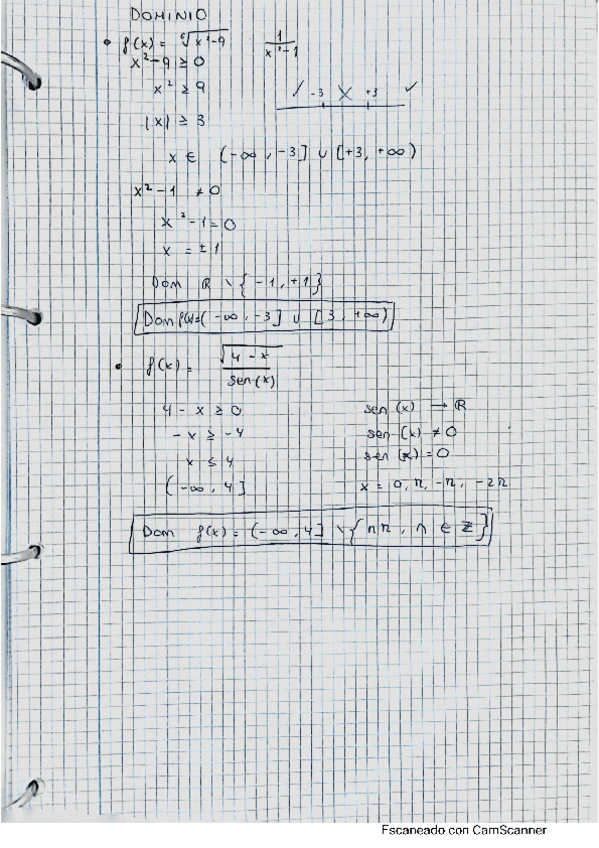 DOMINIO
• f(x) = ⁶√x²-9    1/x²-1
x²-9 ≥ 0
x² ≥ 9    ✓ -3 X +3 ✓
|x| ≥ 3
x ∈ (-∞, -3] ∪ [+3, +∞)
x² - 1 ≠ 0
x² - 1 = 0
x = ± 1
Dom ℝ \ { -1, +1 }
Dom f(x) = (-∞, -3] ∪ [3, +∞)
• f(x) = √4 - x / sen(x)
4 - x ≥ 0    sen (x) → ℝ
- x ≥ -4    sen (x) ≠ 0
x ≤ 4    sen (x) = 0
(-∞, 4]    x = 0, π, -π, -2π
Dom f(x) = (-∞, 4] \ { nπ, n ∈ ℤ }
Escaneado con CamScanner